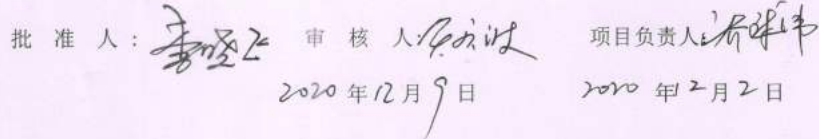 批准人: 李晓飞 审核人: 项目负责人:
2020年12月9日 2020年12月2日